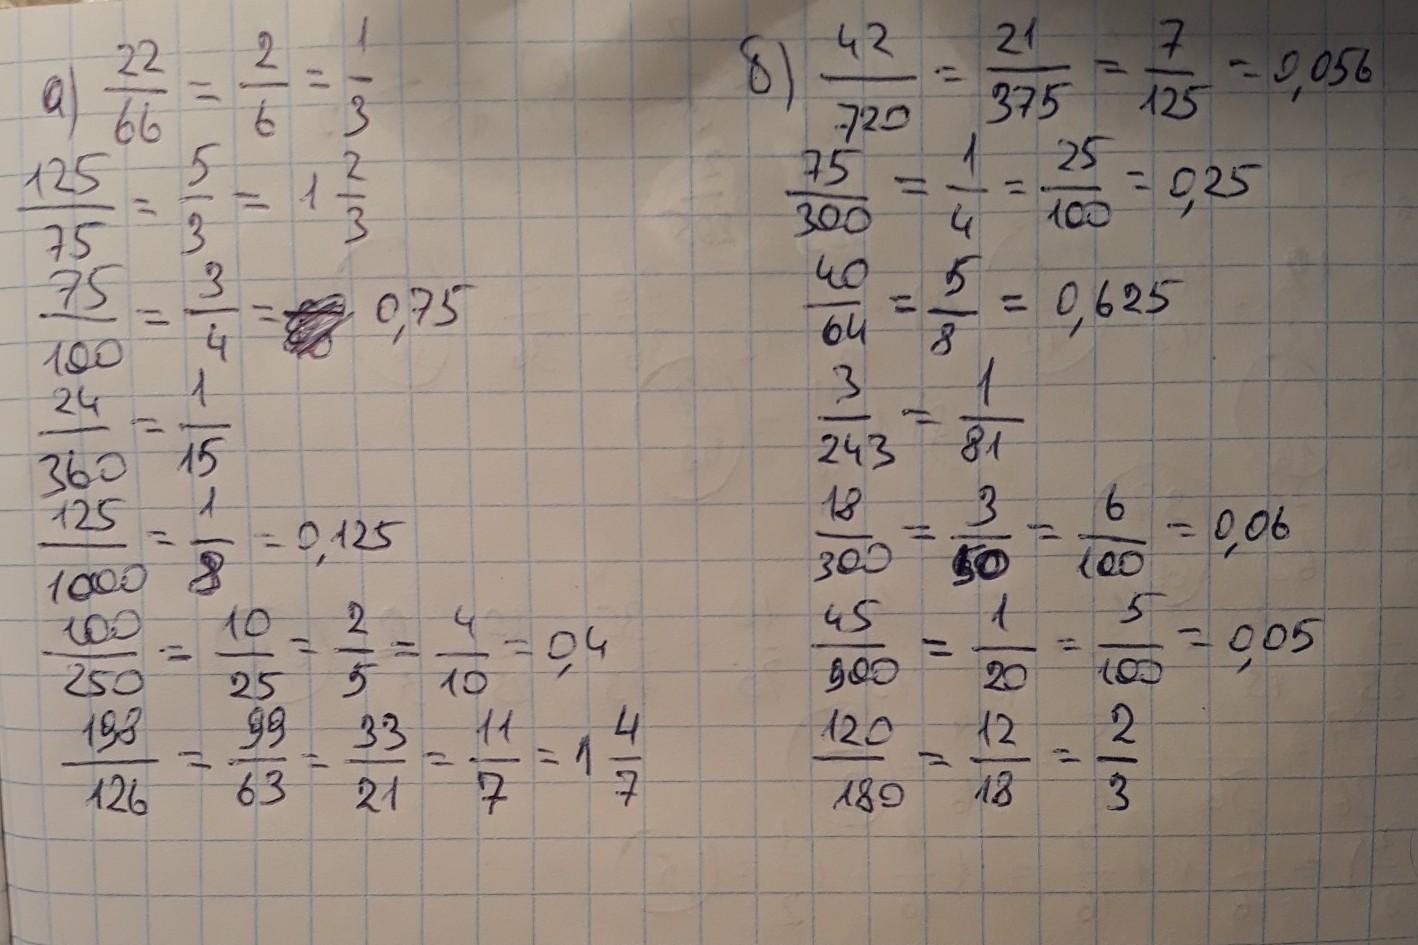 а) 22/66 = 2/6 = 1/3
125/75 = 5/3 = 1 2/3
75/100 = 3/4 = 0,75
24/360 = 1/15
125/1000 = 1/8 = 0,125
100/250 = 10/25 = 2/5 = 4/10 = 0,4
198/126 = 99/63 = 33/21 = 11/7 = 1 4/7
б) 42/720 = 21/375 = 7/125 = 0,056
75/300 = 1/4 = 25/100 = 0,25
40/64 = 5/8 = 0,625
3/243 = 1/81
18/300 = 3/50 = 6/100 = 0,06
45/900 = 1/20 = 5/100 = 0,05
120/180 = 12/18 = 2/3